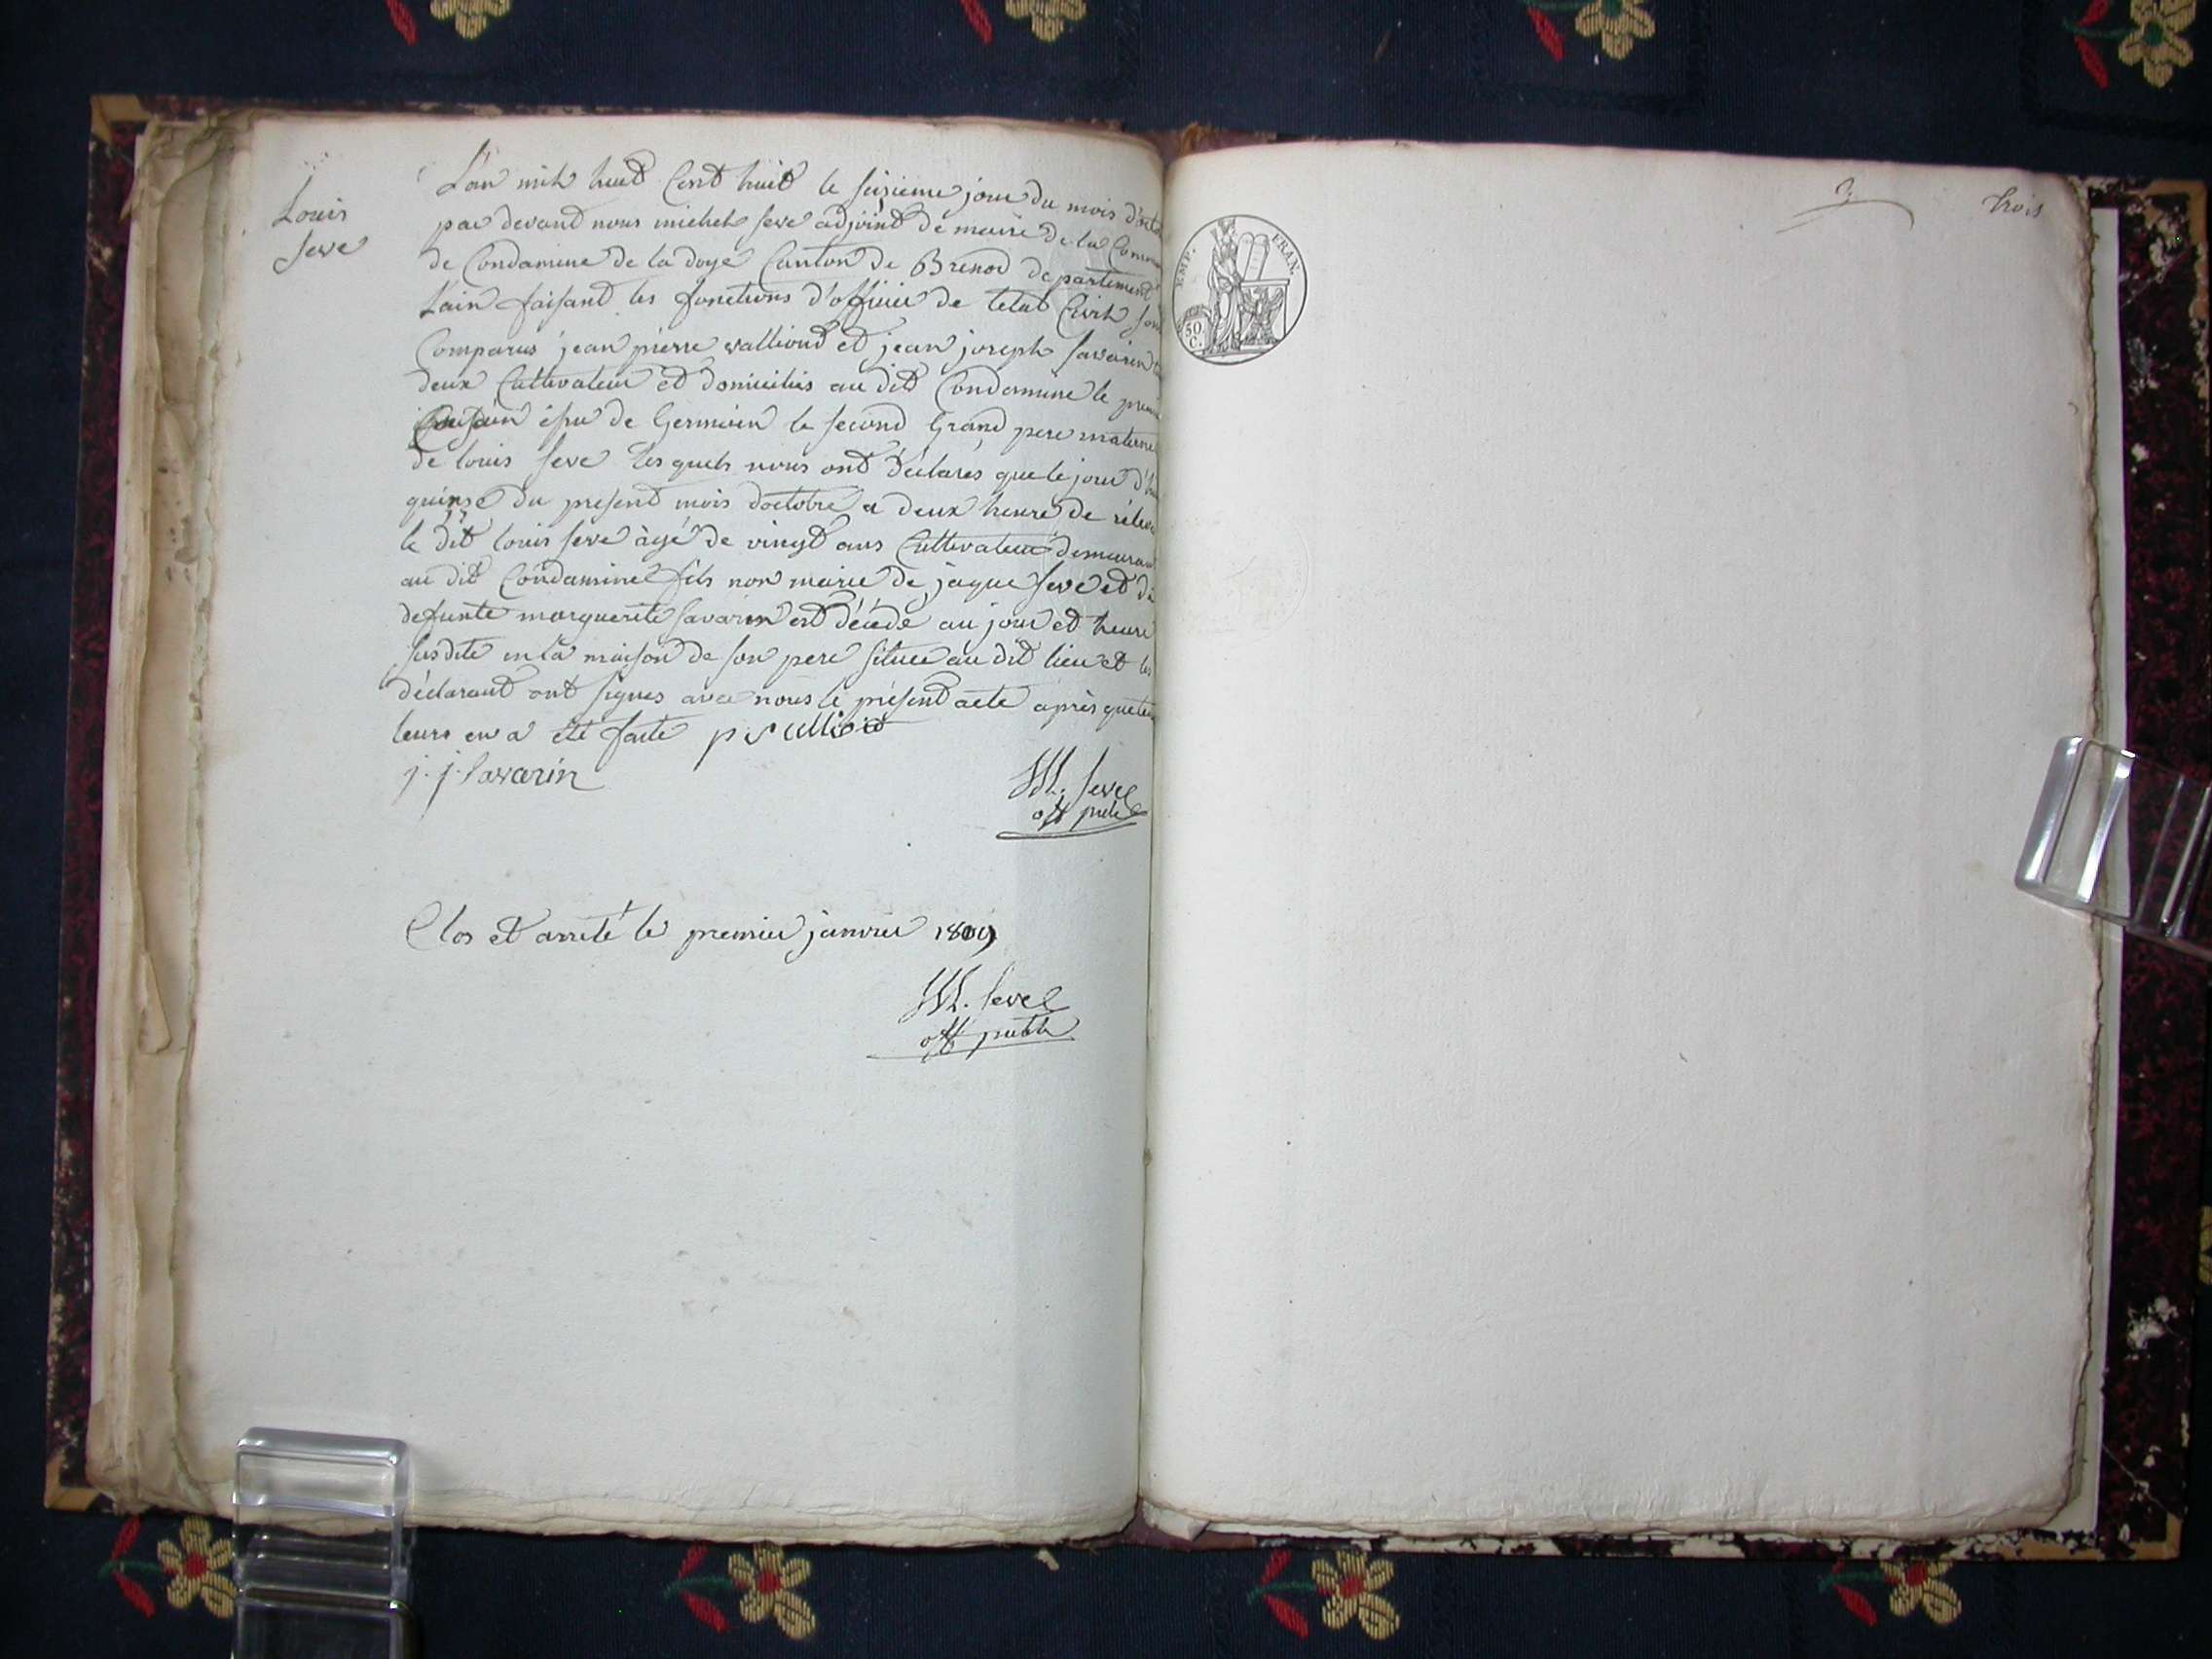 Louis
seve
L'an mil huit Cent huit le seizieme jour du mois d'octo
par devant nous michel seve adjoint de maire de la Commu
de Condamine de la doye Canton de Brenod departement
Lain faisant les fonctions d'officier de letat Civil sont
Comparus jean pierre vallioud et jean joseph savarin
deux Cultivateur et domicilies au dit Condamine le premie
Cousin issu de Germain le second Grand pere materne
de louis seve les quels nous ont déclarés que le jour d'hie
quinse du present mois doctobre a deux heure de
le dit louis seve âgé de vingt ans Cultivateur demeurant
au dit Condamine fils non marié de jaque seve et de
defunte marguerite savarin est décédé au jour et heure
susdite en la maison de son pere situee au dit lieu et les
déclarant ont signes avec nous le présent acte après que
leurs en a été faite
j. j. savarin
M. seve
off publ
Clos et arrêté le premier janvier 1809
M. seve
off publ
3
trois
EMP. FRAN.
50
C.